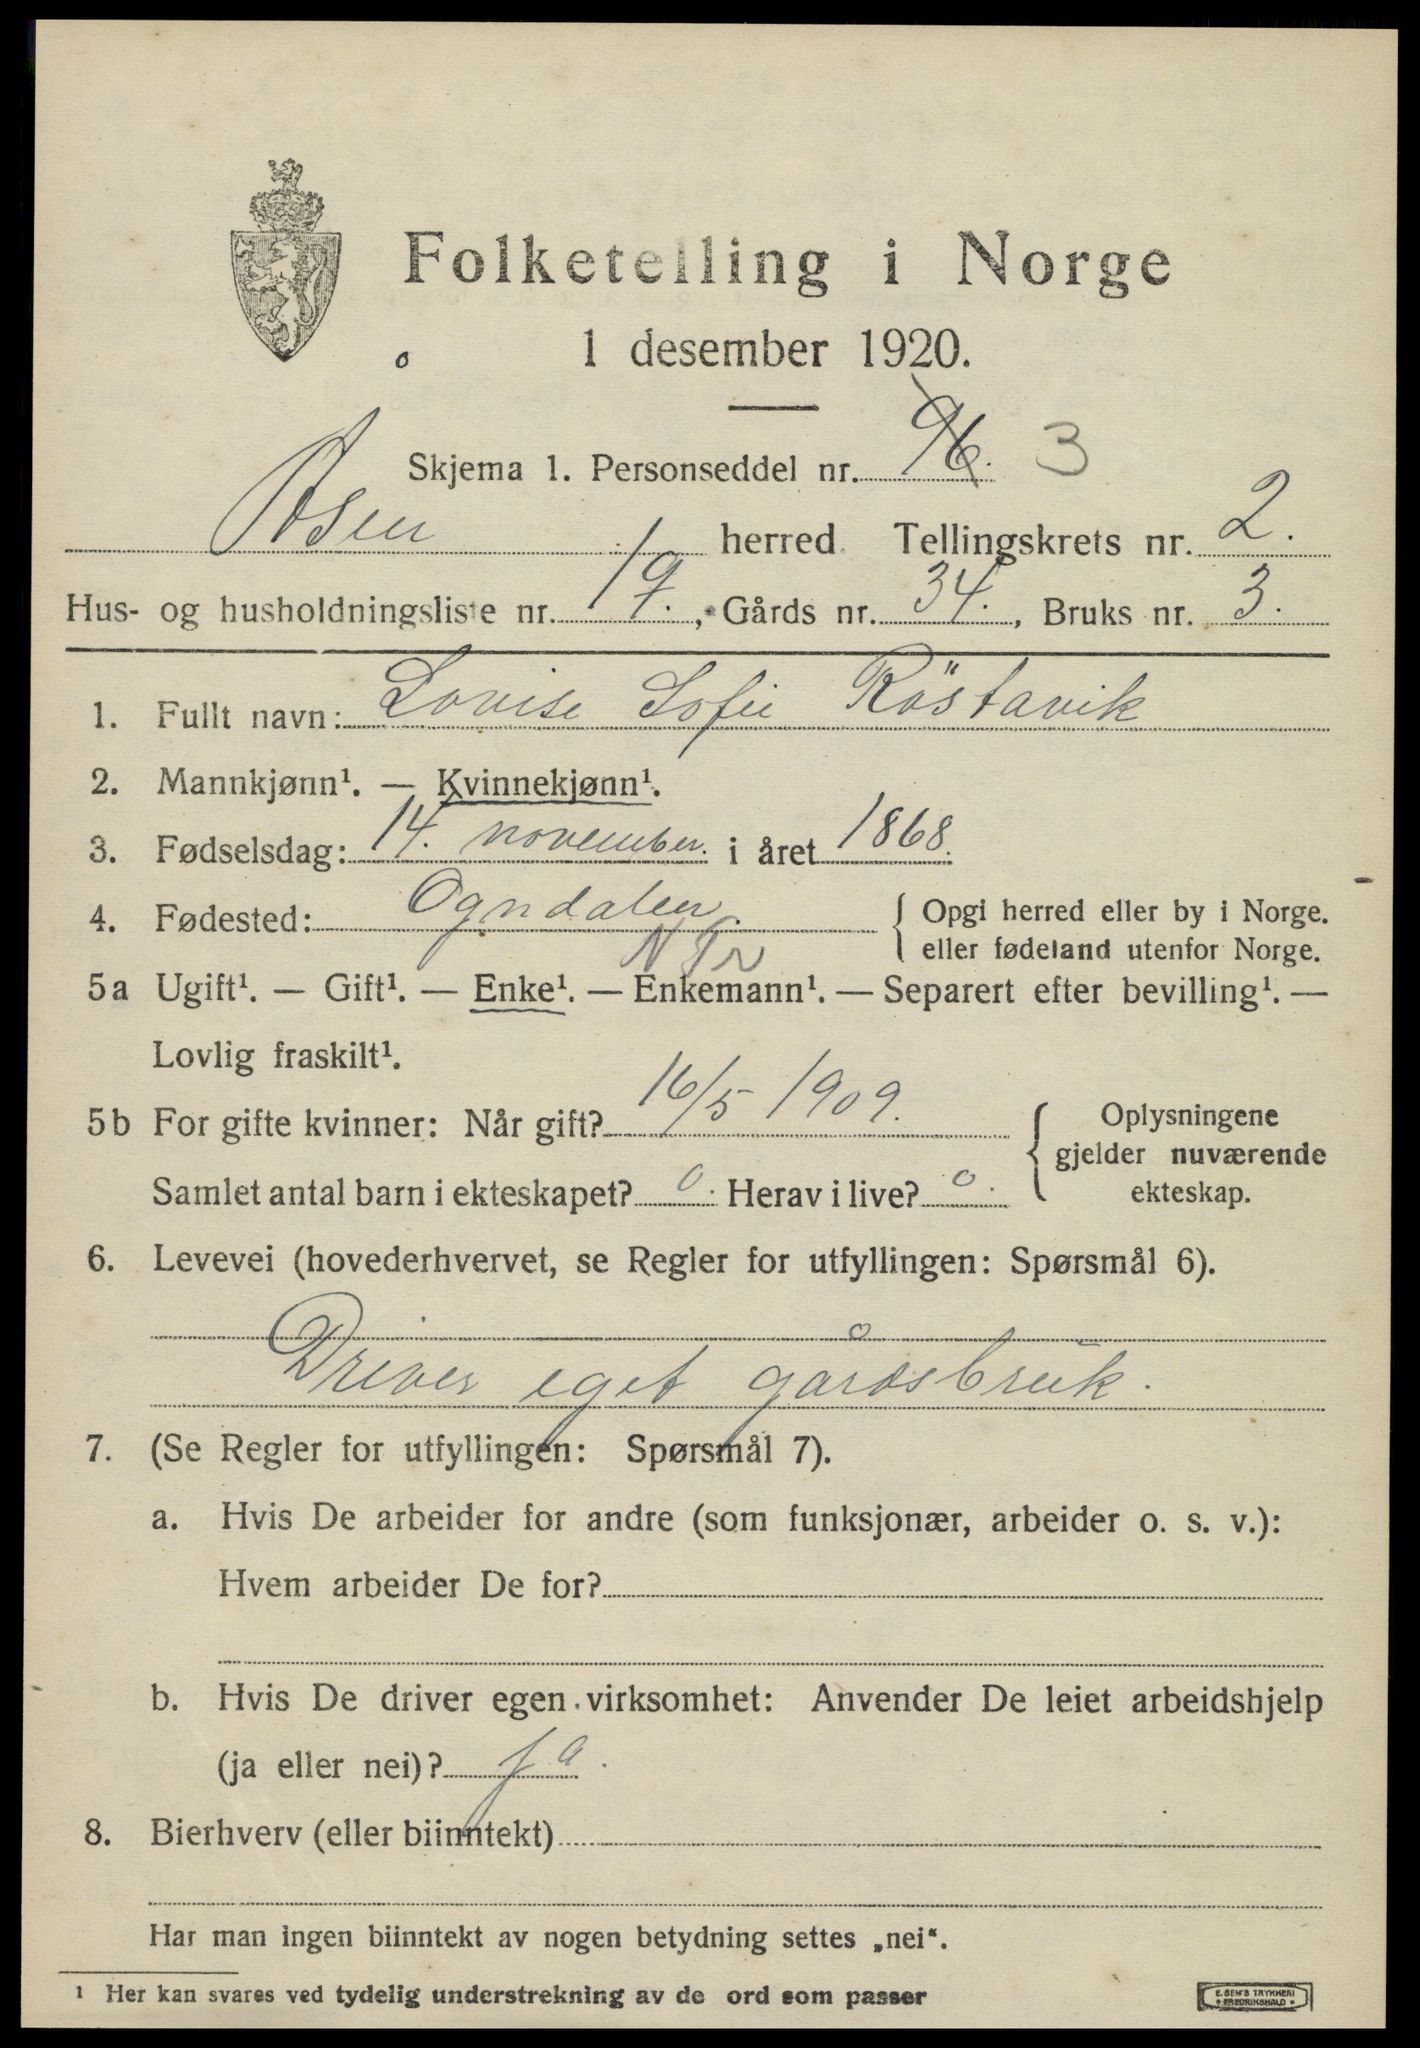 Folketelling i Norge
1 desember 1920.
Skjema 1. Personseddel nr. 96. 3
Åsen herred Tellingskrets nr. 2.
Hus- og husholdningsliste nr. 19., Gårds nr. 34., Bruks nr. 3.
1. Fullt navn: Lovise Sofie Röstavik
2. Mannkjønn¹. — Kvinnekjønn¹.
3. Fødselsdag: 14. november. i året 1868.
4. Fødested: Ogndalen. { Opgi herred eller by i Norge.
N Tr eller fødeland utenfor Norge.
5a Ugift¹. — Gift¹. — Enke¹. — Enkemann¹. — Separert efter bevilling¹. —
Lovlig fraskilt¹.
5b For gifte kvinner: Når gift? 16/5 1909. { Oplysningene
gjelder nuværende
Samlet antal barn i ekteskapet? 0. Herav i live? 0. ekteskap.
6. Levevei (hovederhvervet, se Regler for utfyllingen: Spørsmål 6).
Driver eget gårdsbruk.
7. (Se Regler for utfyllingen: Spørsmål 7).
a. Hvis De arbeider for andre (som funksjonær, arbeider o. s. v.):
Hvem arbeider De for?
b. Hvis De driver egen virksomhet: Anvender De leiet arbeidshjelp
(ja eller nei)? ja.
8. Bierhverv (eller biinntekt)
Har man ingen biinntekt av nogen betydning settes „nei“.
¹ Her kan svares ved tydelig understrekning av de ord som passer
E. SEM'S TRYKKERI
• FREDRIKSHALD •